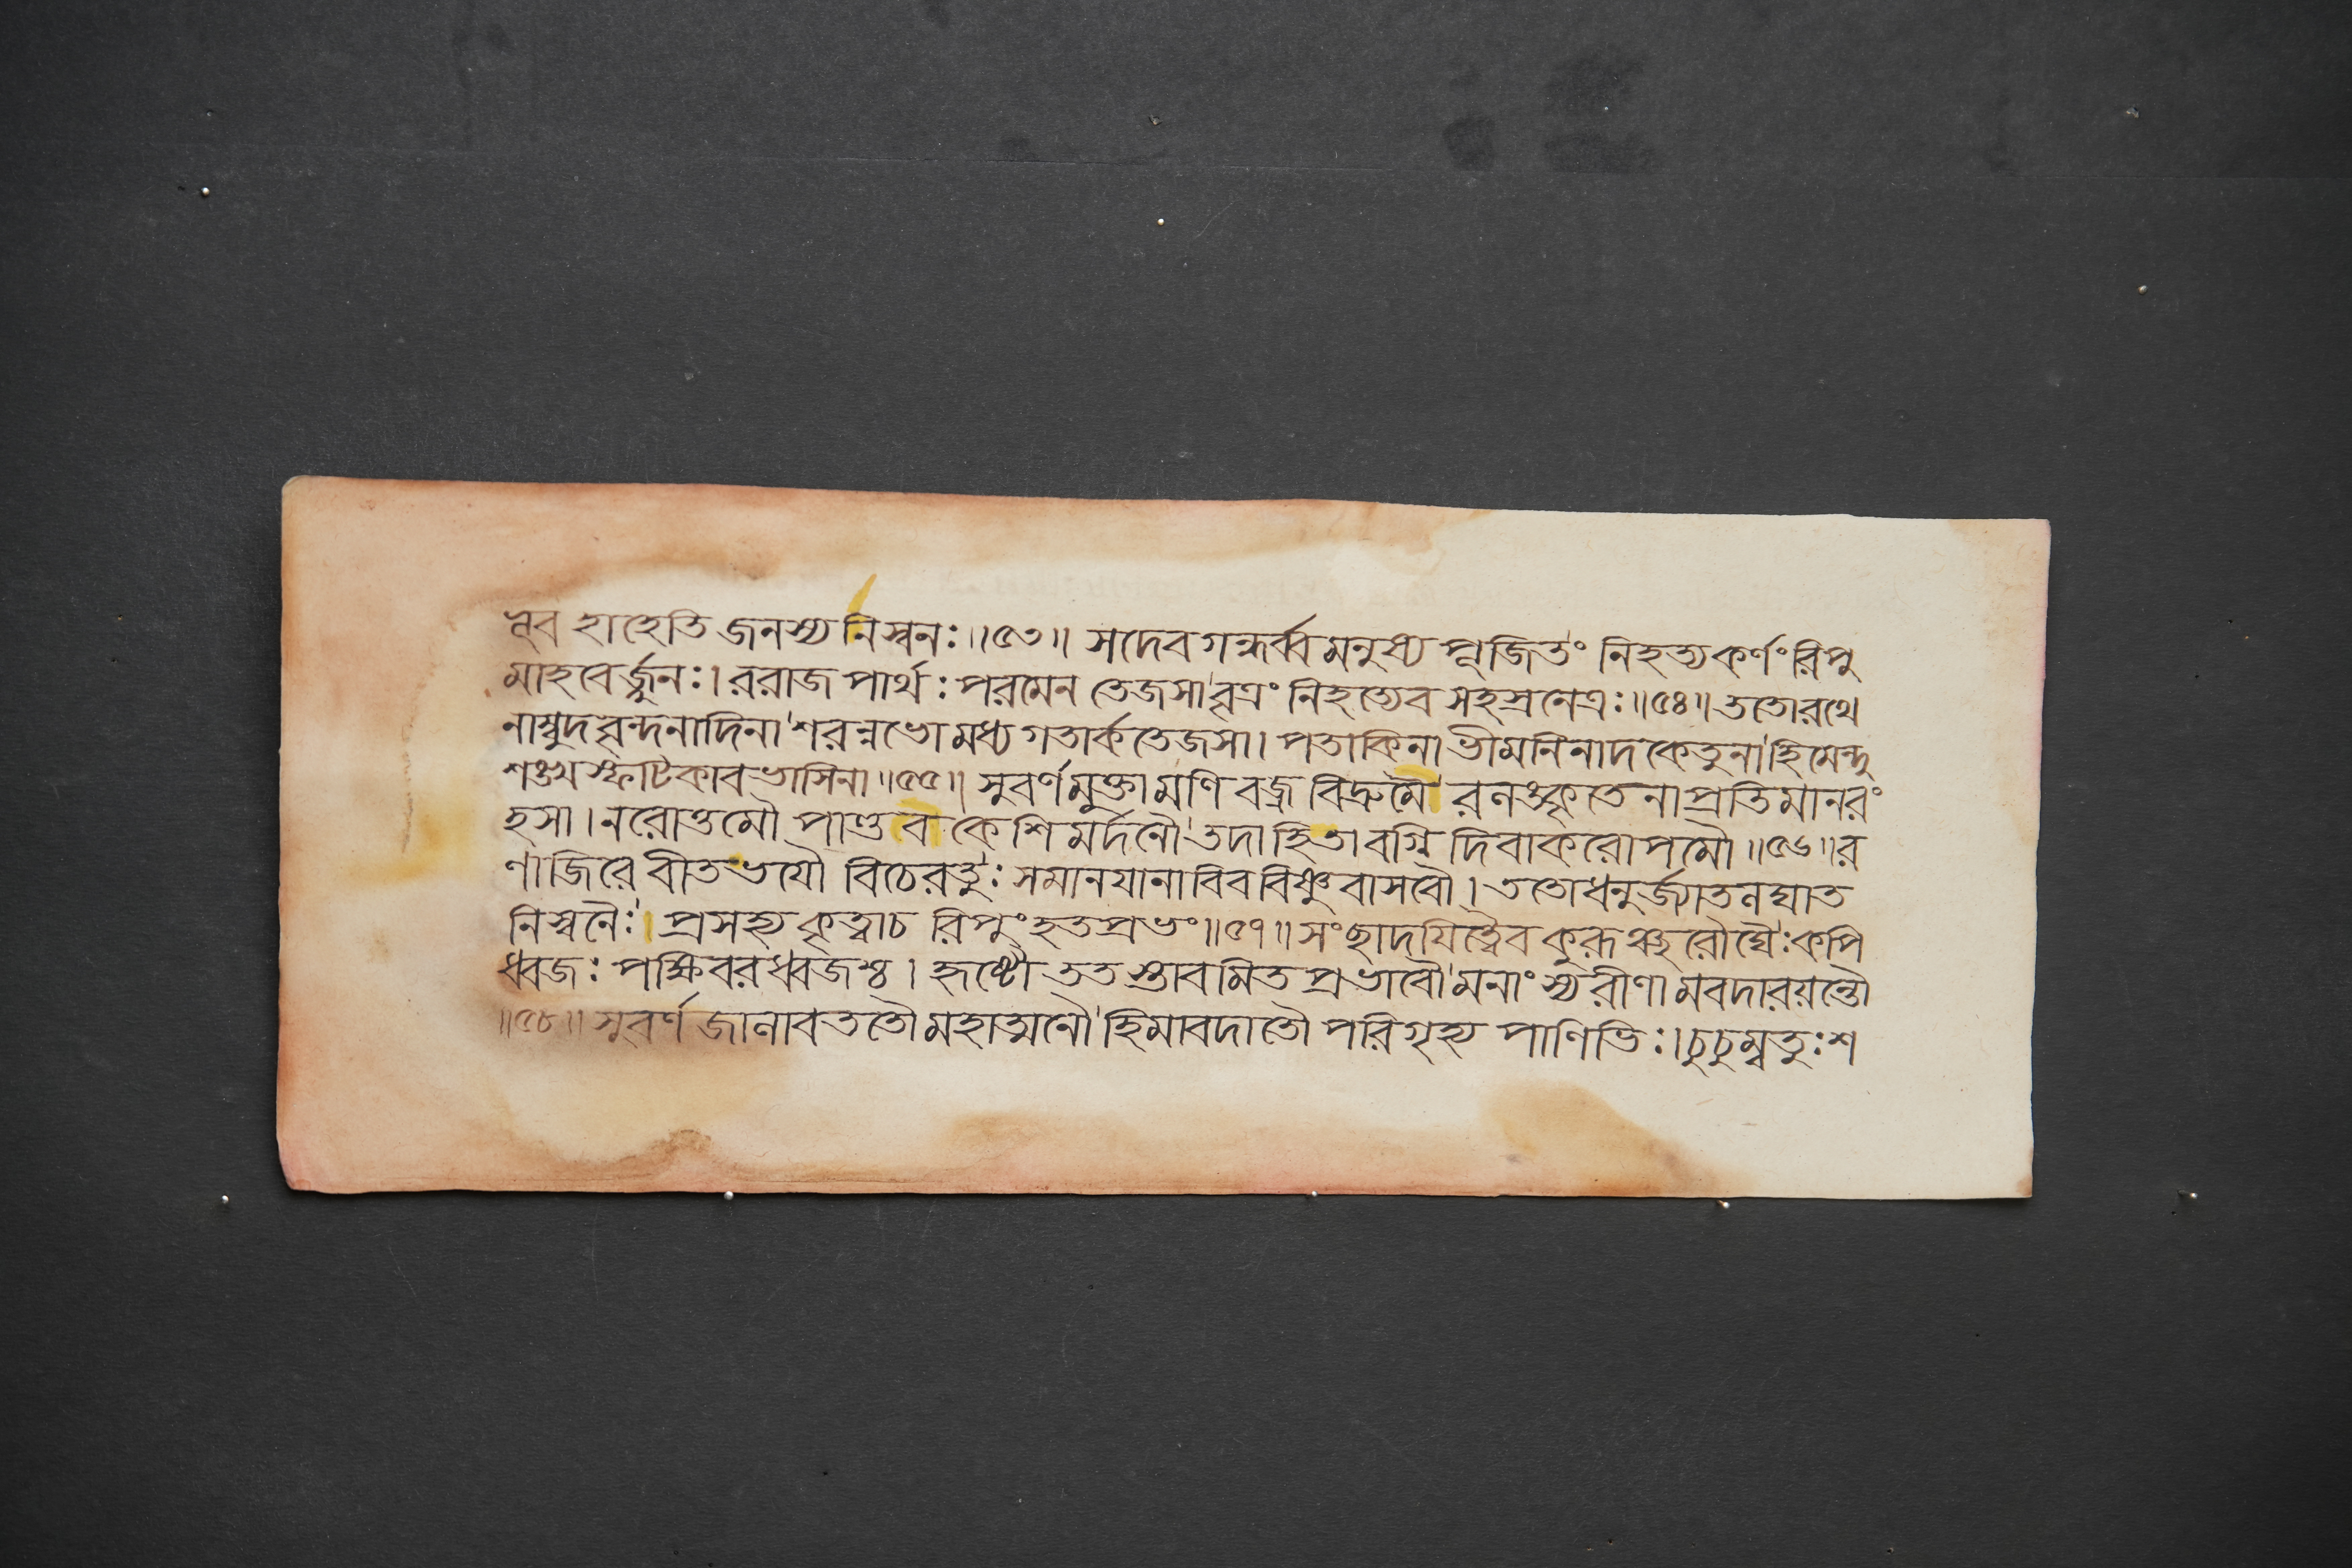 ন্নূব হাহেতি জনস্য নিস্বনঃ॥৫৩॥ সদেবগন্ধর্ব্বমনুষ্য পূজিতং নিহত্যকর্ণং রিপু
মাহবের্জ্জুনঃ। ররাজ পার্থঃ পরমেন তেজসা বৃত্রং নিহত্যেব সহস্রনেত্রঃ॥৫৪॥ ততোরথে
নাম্বুদবৃন্দনাদিনা শরন্নভোমধ্যগতার্কতেজসা। পতাকিনা ভীমনিনাদকেতুনা হিমেন্দু
শঙ্খস্ফটিকাবভাসিনা॥৫৫॥ সুবর্ণমুক্তামণিবজ্রবিদ্রুমৈ রলঙ্কৃতেনাপ্রতিমানরং
হসা। নরোত্তমৌ পাণ্ডবকেশিমর্দনৌ তদাহিতাবগ্নি দিবাকরোপমৌ॥৫৬॥র
ণাজিরে বীতভযৌ বিচেরতুঃ সমানযানাবিববিষ্ণুবাসবৌ। ততোধনুর্জ্যাতলঘাত
নিস্বনৈঃ। প্রসহ্য কৃত্বাচ রিপুং হতপ্রভং॥৫৭॥ সংছাদযিত্বৈব কুরূঞ্চরৌঘৈঃ কপি
ধ্বজঃ পক্ষিবরধ্বজশ্চ। হৃষ্টৌ ততস্তাবমিতপ্রভাবৌ মনাংস্যরীণা মবদারয়ন্তৌ
॥৫৮॥ সুবর্ণজালাবততৌ মহাত্মনৌ হিমাবদাতৌ পরিগৃহ্য পাণিভিঃ। চুচুম্বতুঃ শ